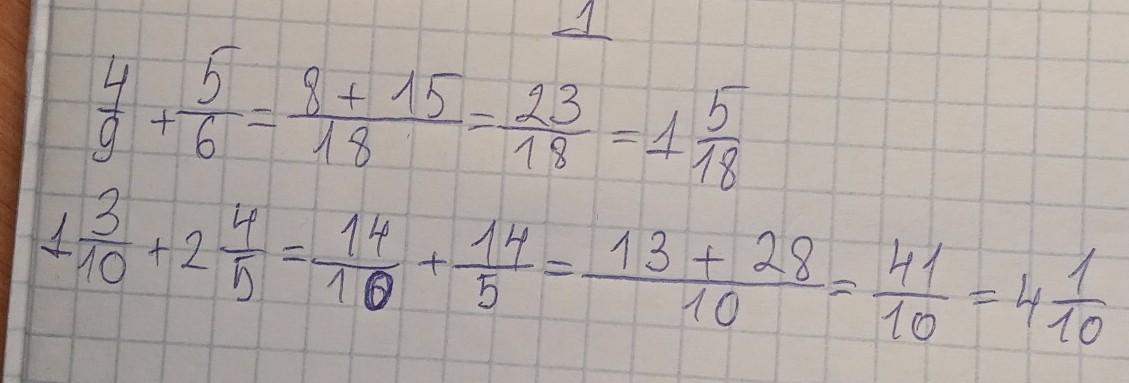 1
4/9 + 5/6 = (8 + 15)/18 = 23/18 = 1 5/18
1 3/10 + 2 4/5 = 14/10 + 14/5 = (13 + 28)/10 = 41/10 = 4 1/10